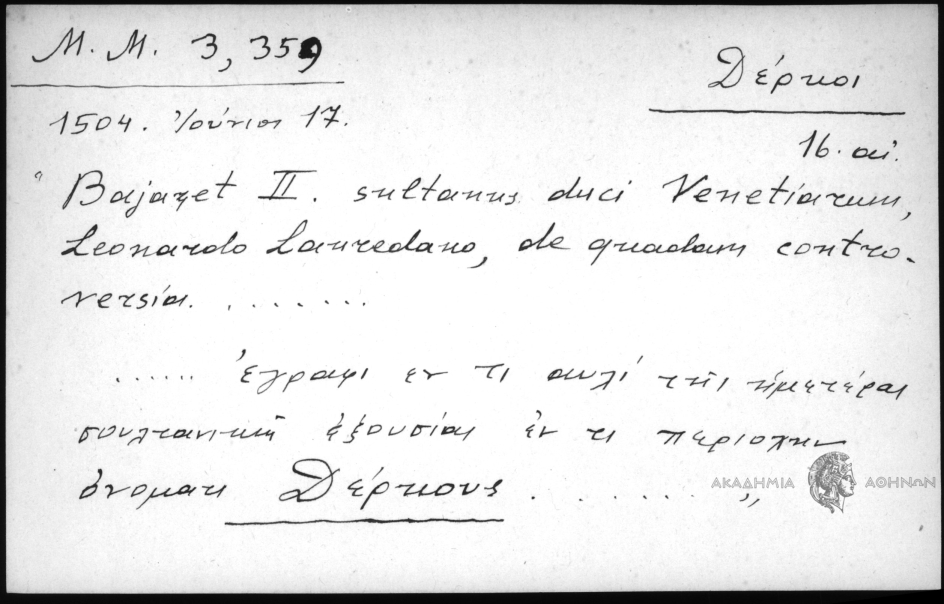 Μ. Μ. 3, 359
Δέρκοι
1504. Ἰούνιος 17.
16. αἰ.
"Bajazet II. sultanus duci Venetiarum,
Leonardo Lauredano, de quadam contro-
versia. . . . . . . .
. . . . . . ἐγραφι εν τι αυλί τῆς ἡμετέρας
σουλτανικῆς ἐξουσίας ἐν τι περιοχην
ὀνοματι Δέρκους . . . . . . . "
ΑΚΑΔΗΜΙΑ ΑΘΗΝΩΝ